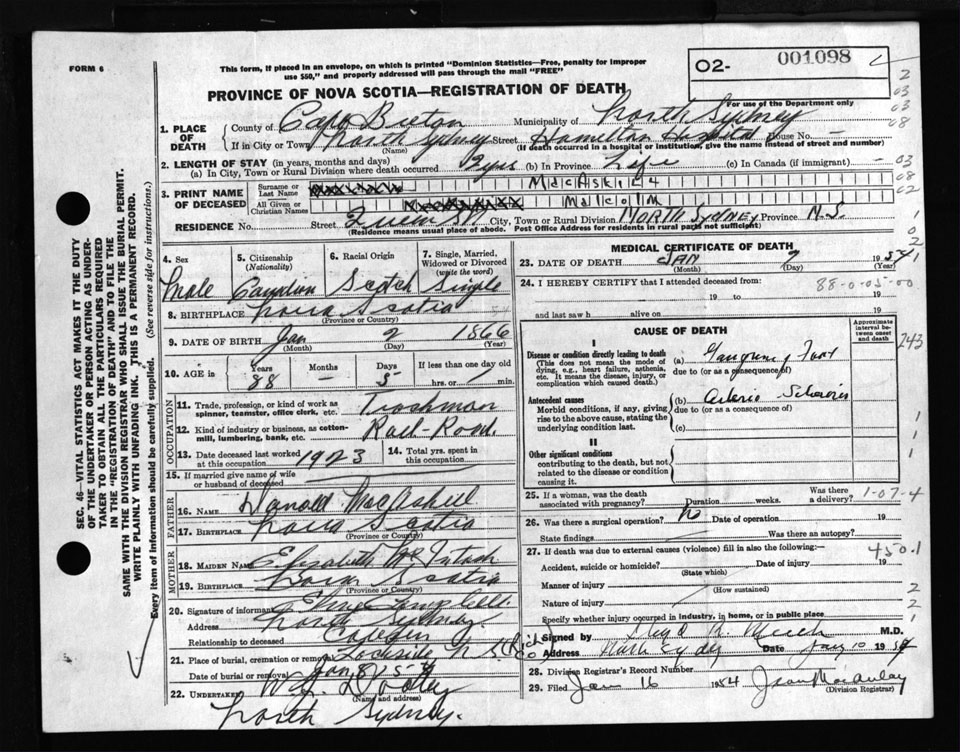 FORM 6
This form, if placed in an envelope, on which is printed "Dominion Statistics—Free, penalty for improper
use $50," and properly addressed will pass through the mail "FREE"
O2- 001098
PROVINCE OF NOVA SCOTIA—REGISTRATION OF DEATH
For use of the Department only
1. PLACE OF DEATH County of Cape Breton Municipality of North Sydney
If in City or Town North Sydney (Name) Street Hamilton Hospital House No. —
(If death occurred in a hospital or institution, give the name instead of street and number)
2. LENGTH OF STAY (in years, months and days)
(a) In City, Town or Rural Division where death occurred 2 yrs (b) In Province Life (c) In Canada (if immigrant) —
3. PRINT NAME OF DECEASED Surname or Last Name MacAskill
All Given or Christian Names Malcolm
RESIDENCE No. Street Queen St City, Town or Rural Division North Sydney Province N.S.
(Residence means usual place of abode. Post Office Address for residents in rural parts not sufficient)
4. Sex 5. Citizenship (Nationality) 6. Racial Origin 7. Single, Married, Widowed or Divorced (write the word)
Male Canadian Scotch Single
8. BIRTHPLACE Nova Scotia
(Province or Country)
9. DATE OF BIRTH Jan 2 1866
(Month) (Day) (Year)
10. AGE in Years Months Days If less than one day
88 — 5 hrs. or min.
OCCUPATION
11. Trade, profession, or kind of work as spinner, teamster, office clerk, etc. Trackman
12. Kind of industry or business, as cotton-mill, lumbering, bank, etc. Rail-Road
13. Date deceased last worked at this occupation 1923 14. Total yrs. spent in this occupation
15. If married give name of wife or husband of deceased
FATHER
16. NAME Donald MacAskill
17. BIRTHPLACE Nova Scotia
(Province or Country)
MOTHER
18. MAIDEN NAME Elizabeth McIntosh
19. BIRTHPLACE Nova Scotia
(Province or Country)
20. Signature of informant Campbell
Address North Sydney
Relationship to deceased
21. Place of burial, cremation or removal
Date of burial or removal Jan
22. UNDERTAKER W.J. Dooley
(Name and address)
North Sydney.
MEDICAL CERTIFICATE OF DEATH
23. DATE OF DEATH JAN 7 1954
(Month) (Day) (Year)
24. I HEREBY CERTIFY that I attended deceased from:
88-0-05-00
19 to 19
and last saw h alive on 19
CAUSE OF DEATH
Approximate interval between onset and death
I
Disease or condition directly leading to death
(This does not mean the mode of dying, e.g., heart failure, asthenia, etc. It means the disease, injury, or complication which caused death.)
(a) Gangrene of Foot
due to (or as a consequence of)
Antecedent causes
Morbid conditions, if any, giving rise to the above cause, stating the underlying condition last.
(b) Arterio Sclerosis
due to (or as a consequence of)
(c)
II
Other significant conditions
contributing to the death, but not related to the disease or condition causing it.
25. If a woman, was the death associated with pregnancy? Duration weeks. Was there a delivery? 1-07-4
26. Was there a surgical operation? No Date of operation 19
State findings Was there an autopsy?
27. If death was due to external causes (violence) fill in also the following:— 450.1
Accident, suicide or homicide? Date of injury 19
(State which)
Manner of injury
(How sustained)
Nature of injury
Specify whether injury occurred in industry, in home, or in public place
Signed by M.D.
Address North Sydney Date Jany 10 1954
28. Division Registrar's Record Number
29. Filed Jan 16 1954 Jean MacAulay
(Division Registrar)
SEC. 46—VITAL STATISTICS ACT MAKES IT THE DUTY
OF THE UNDERTAKER OR PERSON ACTING AS UNDER-
TAKER TO OBTAIN ALL THE PARTICULARS REQUIRED
IN THE "REGISTRATION OF DEATH" AND TO FILE THE
SAME WITH THE DIVISION REGISTRAR WHO SHALL ISSUE THE BURIAL PERMIT.
WRITE PLAINLY WITH UNFADING INK. THIS IS A PERMANENT RECORD.
Every item of information should be carefully supplied. (See reverse side for instructions.)
2
03
03
08
03
08
02
1
0
2
1
743
1
1
1
2
2
1